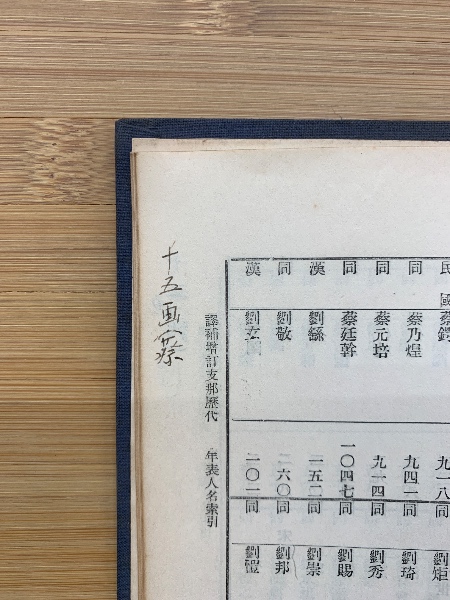 民國 蔡鍔 九一八
同 蔡乃煌 九四一
同 蔡元培 九一四
同 蔡廷幹 一〇四七
漢 劉繇 一五二
同 劉敬 二六〇
漢 劉玄 二〇二
同 劉矩
同 劉琦
同 劉秀
同 劉賜
同 劉崇
同 劉邦
同 劉
譯補增訂支那歷代 年表人名索引
十五画 蔡